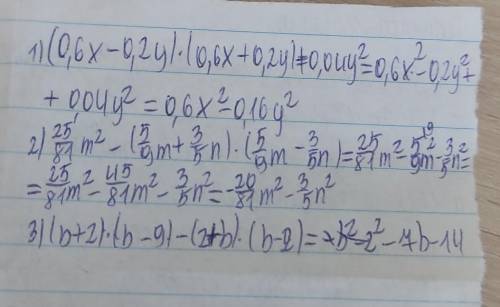 1) (0,6x-0,2y)·(0,6x+0,2y)+0,04y²=0,6x²-0,2y²+
+0,04y²=0,6x²-0,16y²
2) 25/81m²-(5/9m+3/5n)·(5/9m-3/5n)=25/81m²-5/9m²-3/5n²=
=25/81m²-45/81m²-3/5n²=-20/81m²-3/5n²
3) (b+2)·(b-9)-(2+b)·(b-2)= -2²-7b-14